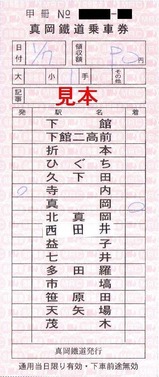 甲冊 No
真岡鐵道乗車券
日付 1/7 領収額 円
大 小 手 その他
記事 見本
発 駅名 着
下館
下館二高前
折本
ひぐち
久下田
寺内
真岡
北真岡
西田井
益子
七井
多田羅
市塙
笹原田
天矢場
茂木
真岡鐵道発行
通用当日限り有効・下車前途無効